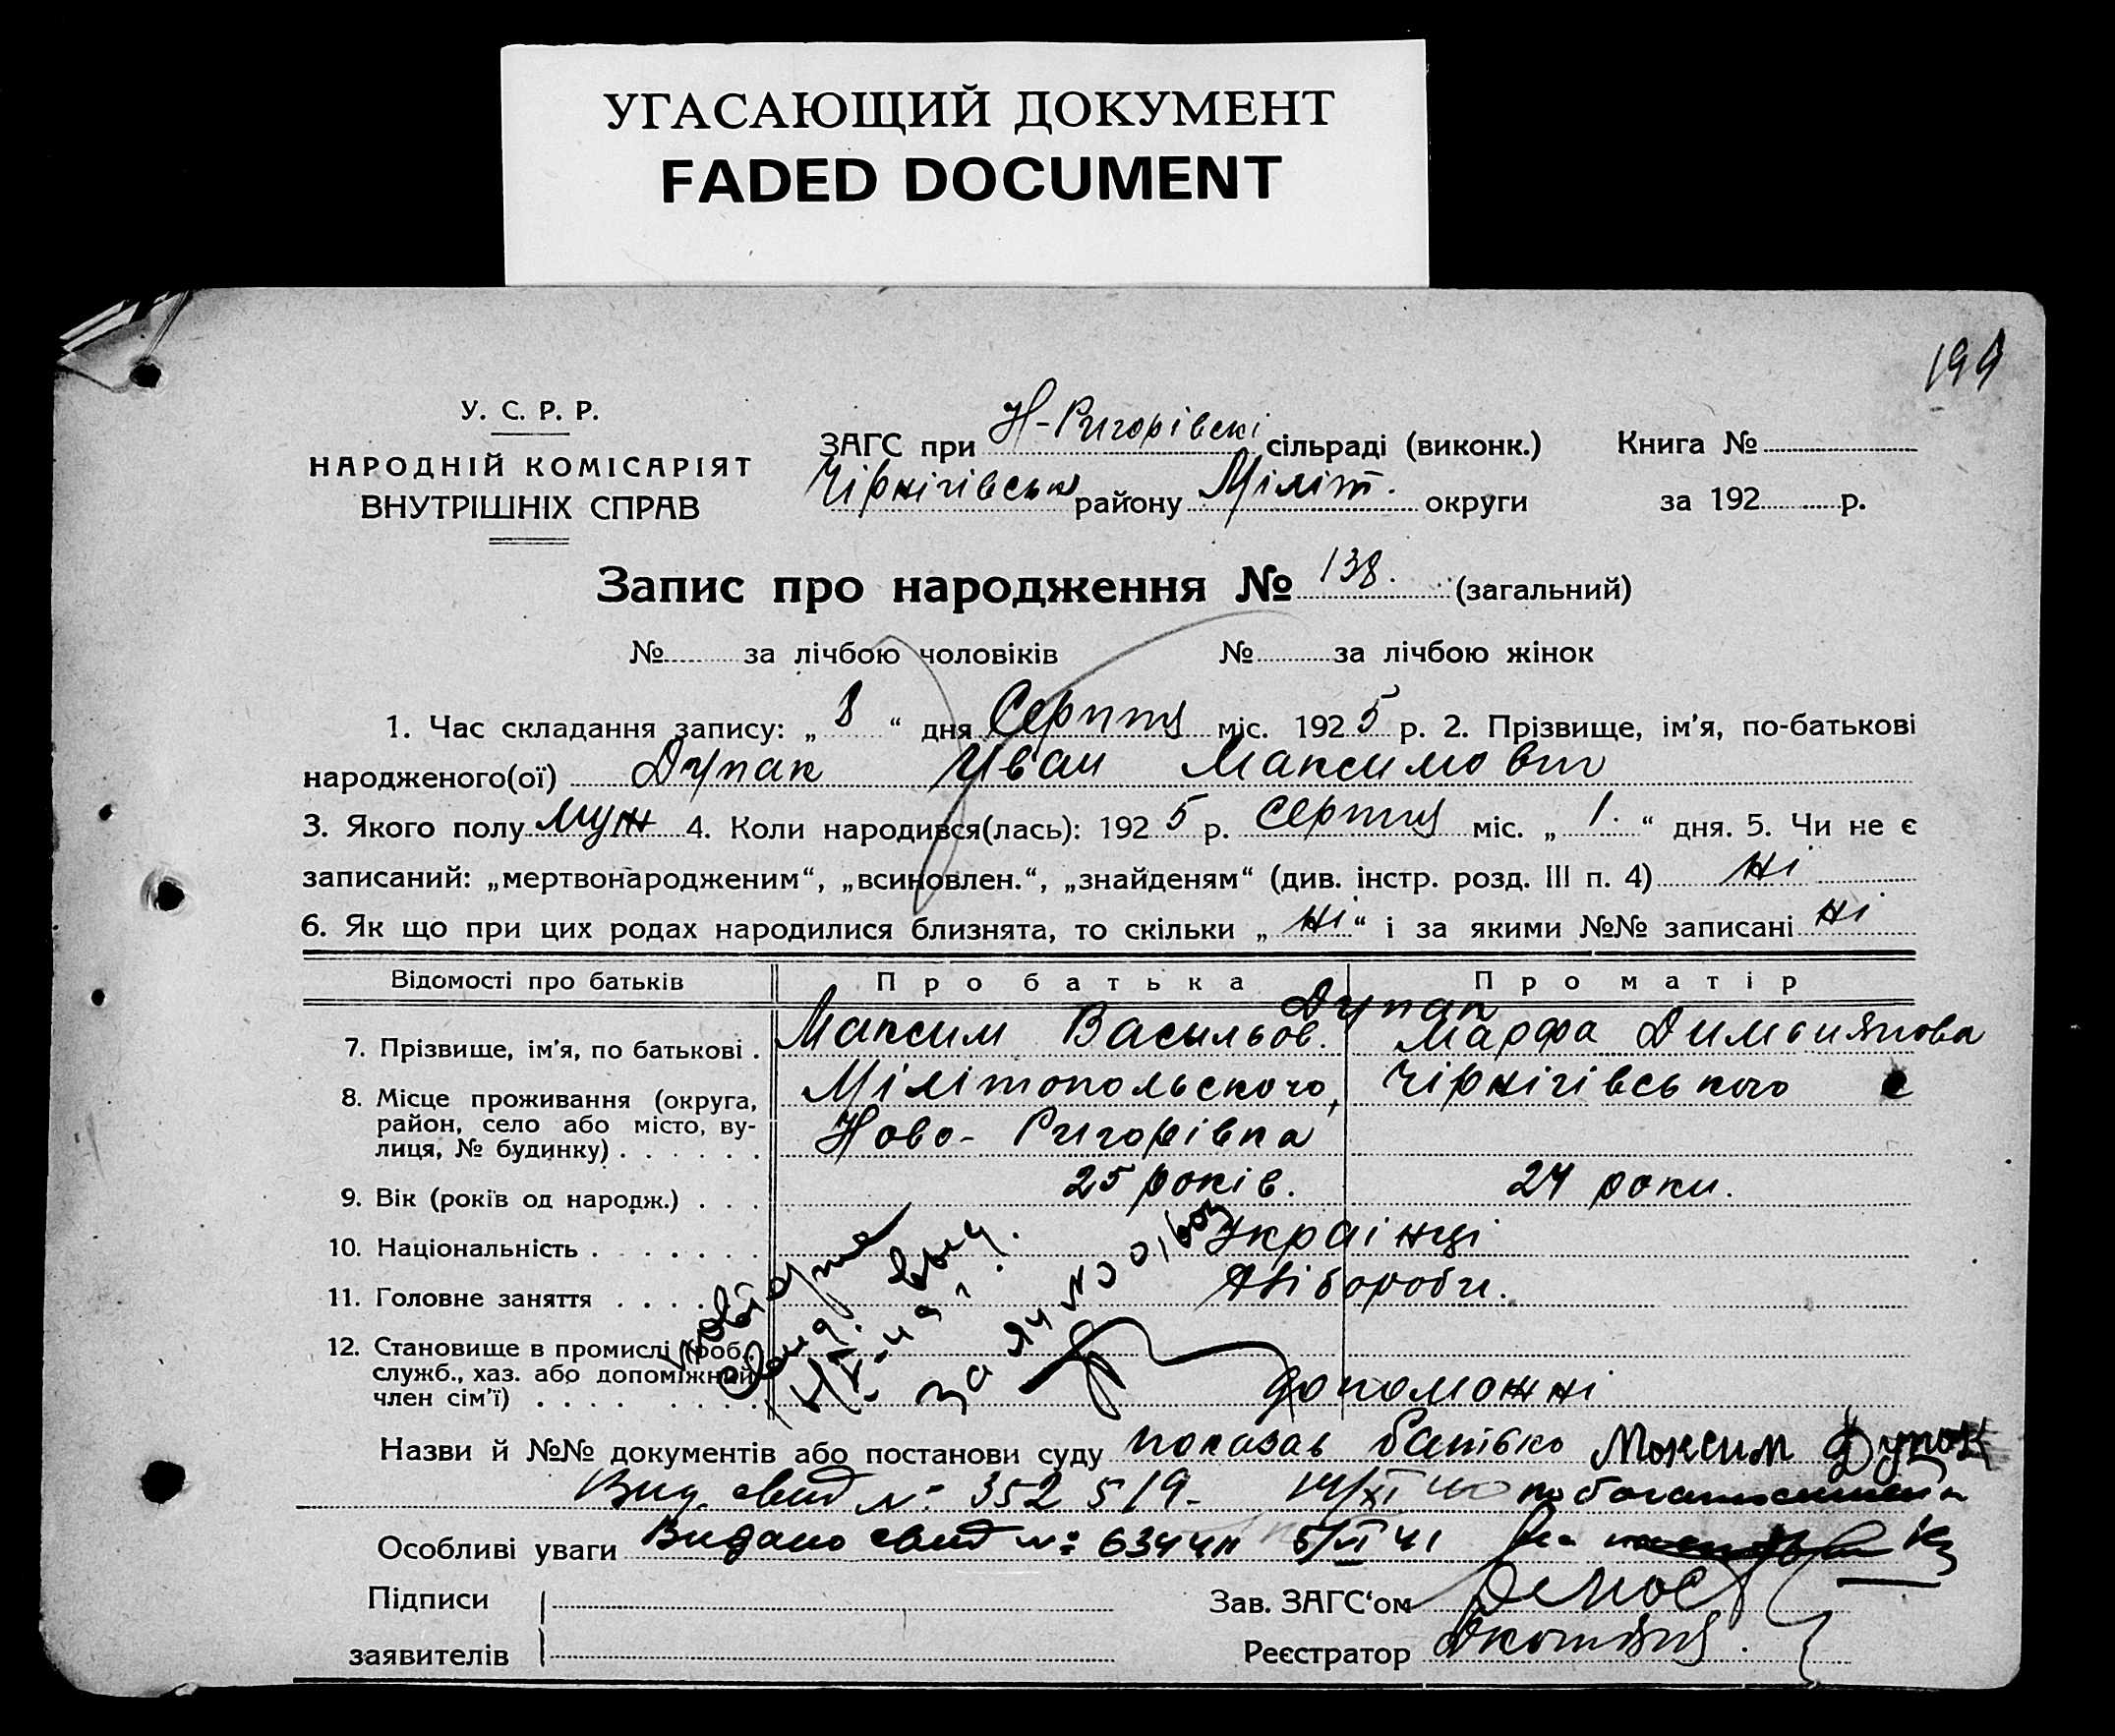 УГАСАЮЩИЙ ДОКУМЕНТ
FADED DOCUMENT
199
У. С. Р. Р.
НАРОДНІЙ КОМІСАРІЯТ
ВНУТРІШНІХ СПРАВ
ЗАГС при Н-Ригорівскі сільраді (виконк.) Книга №
Чірнігівськ району Міліт. округи за 192 р.
Запис про народження № 138. (загальний)
№ за лічбою чоловіків № за лічбою жінок
1. Час складання запису: „ 8 “ дня Серпня міс. 1925 р. 2. Прізвище, ім’я, по-батькові
народженого(ої) Дупак Иван Максимович
3. Якого полу муж 4. Коли народився(лась): 1925 р. Серпня міс. „ 1. “ дня. 5. Чи не є
записаний: „мертвонародженим“, „всиновлен.“, „знайденям“ (див. інстр. розд. III п. 4) ні
6. Як що при цих родах народилися близнята, то скільки „ ні “ і за якими №№ записані ні
Відомості про батьків Про батька Про матір
Дупак
7. Прізвище, ім’я, по батькові . Максим Васильов. Марфа
8. Місце проживання (округа, Мілітопольского, Чірнігівського
район, село або місто, ву- Ново-Ригорівка
лиця, № будинку) . . . . . .
9. Вік (років од народж.) . . . 25 років. 24 роки.
10. Національність . . . . . . . Українці
11. Головне заняття . . . . Хлібороби.
12. Становище в промислі (роб.,
служб., хаз. або допоміжний
член сім’ї) . . . . допоможні
Назви й №№ документів або постанови суду показав батько Максим Дупак
Вид. свид №: 352519- 14/XI 40
Особливі уваги Видано свид №: 5/VI 41
Підписи Зав. ЗАГС‘ом
заявителів Реєстратор